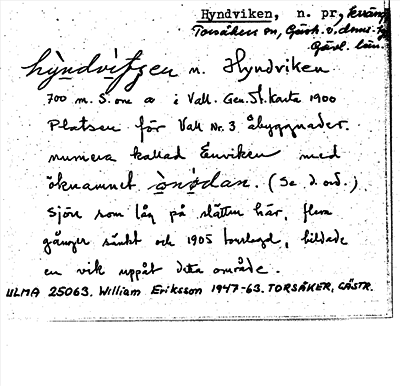 Hyndviken, n. pr.,
Torsåkers sn, Gästr.
Gävl. län.
hy̆ndvìkən n. Hyndviken.
700 m. S. om a i Vall. Gen. St. Karta 1900
Platsen för Vall Nr. 3 åbyggnader.
numera kallad Enviken med
öknamnet ònødan. (Se d. ord.)
Sjön som låg på slätten här, flera
gånger sänkt och 1905 torrlagd, bildade
en vik uppåt detta område.
ULMA 25063. William Eriksson 1947-63. TORSÅKER, GÄSTR.